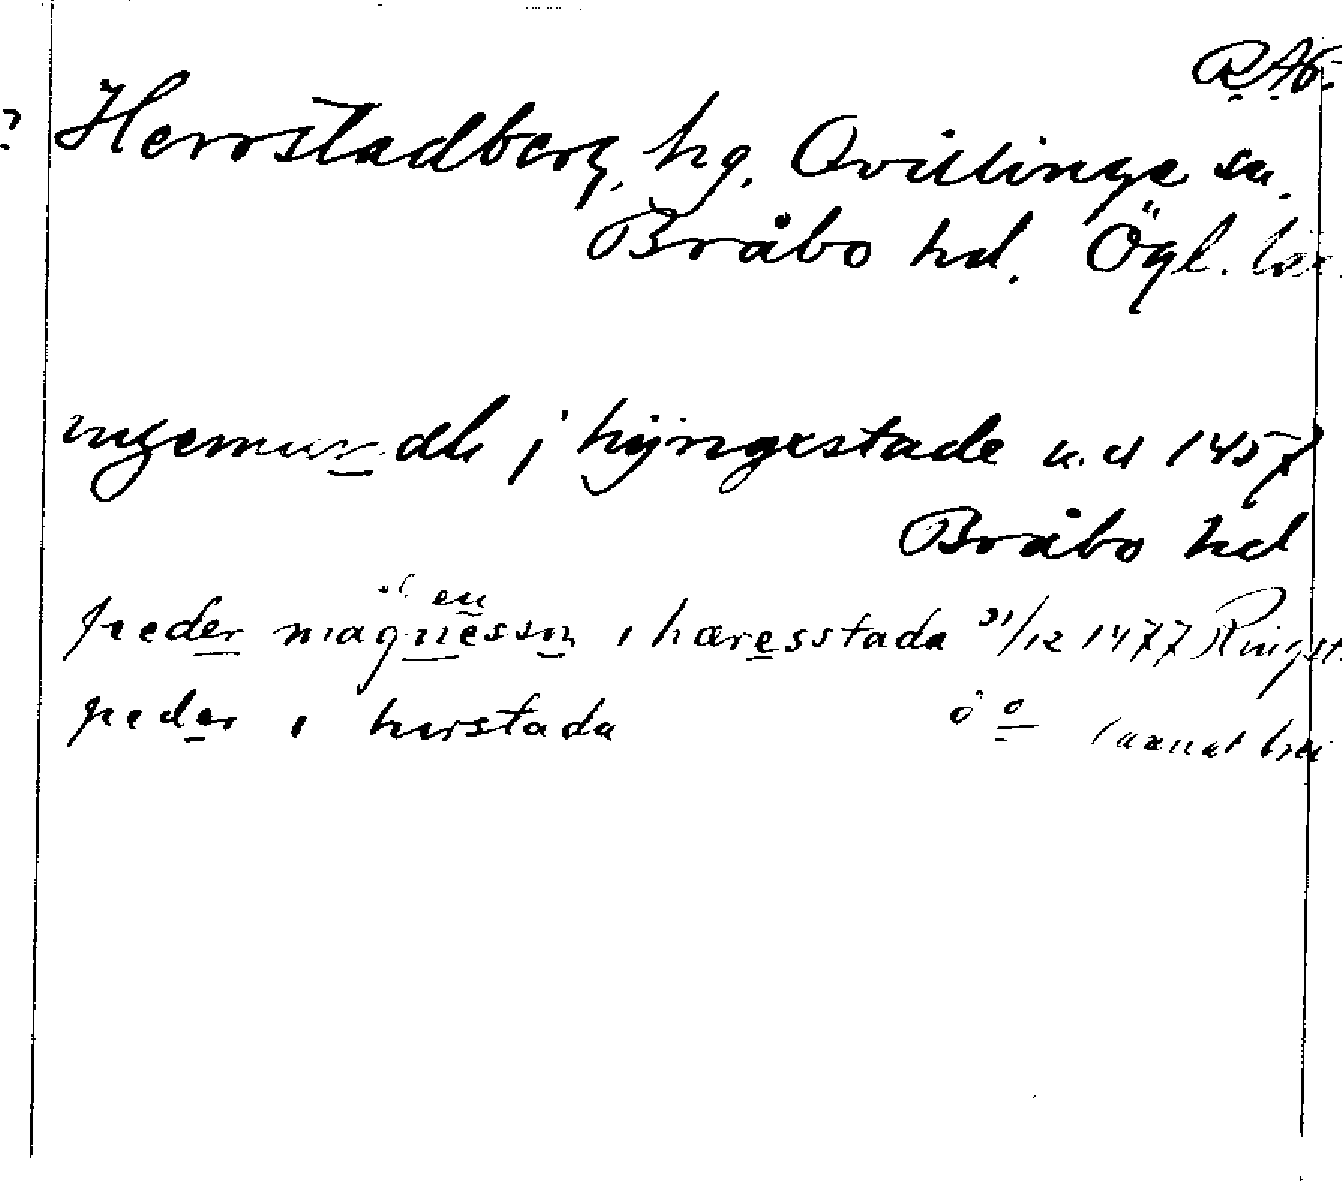 RAP.
? Herrstadberg, hg. Qvillinge sn.
Bråbo hd. Ögl. län.
ingemundh j hyngestade u.d 1457
Bråbo hd
en
peder magnesson i hæresstada 31/12 1477 Ringst.
peder i herstada